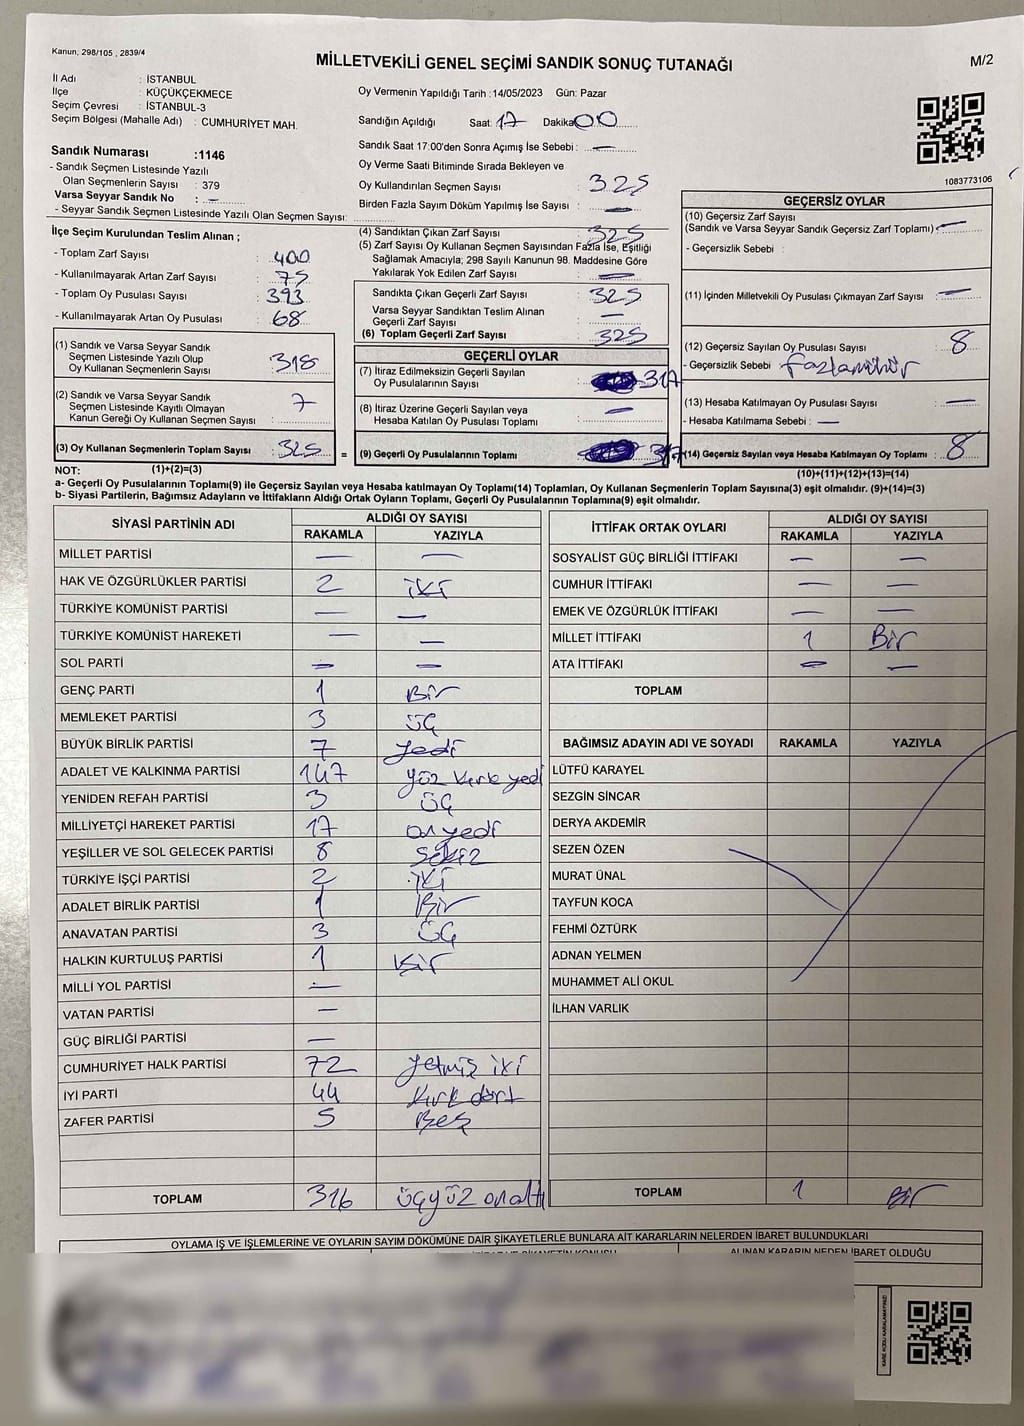 Kanun, 298/105 , 2839/4
MİLLETVEKİLİ GENEL SEÇİMİ SANDIK SONUÇ TUTANAĞI
M/2
İl Adı : İSTANBUL
İlçe : KÜÇÜKÇEKMECE
Seçim Çevresi : İSTANBUL-3
Seçim Bölgesi (Mahalle Adı) : CUMHURİYET MAH.
Sandık Numarası :1146
- Sandık Seçmen Listesinde Yazılı
Olan Seçmenlerin Sayısı : 379
Varsa Seyyar Sandık No : —
- Seyyar Sandık Seçmen Listesinde Yazılı Olan Seçmen Sayısı:
Oy Vermenin Yapıldığı Tarih :14/05/2023 Gün: Pazar
Sandığın Açıldığı Saat: 17 Dakika: 00
Sandık Saat 17:00'den Sonra Açımış İse Sebebi : —
Oy Verme Saati Bitiminde Sırada Bekleyen ve
Oy Kullandırılan Seçmen Sayısı : 325
Birden Fazla Sayım Döküm Yapılmış İse Sayısı : —
1083773106
İlçe Seçim Kurulundan Teslim Alınan ;
- Toplam Zarf Sayısı : 400
- Kullanılmayarak Artan Zarf Sayısı : 75
- Toplam Oy Pusulası Sayısı : 393
- Kullanılmayarak Artan Oy Pusulası : 68
(1) Sandık ve Varsa Seyyar Sandık
Seçmen Listesinde Yazılı Olup
Oy Kullanan Seçmenlerin Sayısı : 318
(2) Sandık ve Varsa Seyyar Sandık
Seçmen Listesinde Kayıtlı Olmayan
Kanun Gereği Oy Kullanan Seçmen Sayısı : 7
(3) Oy Kullanan Seçmenlerin Toplam Sayısı : 325 =
(4) Sandıktan Çıkan Zarf Sayısı : 325
(5) Zarf Sayısı Oy Kullanan Seçmen Sayısından Fazla İse, Eşitliği
Sağlamak Amacıyla; 298 Sayılı Kanunun 98. Maddesine Göre
Yakılarak Yok Edilen Zarf Sayısı : —
Sandıkta Çıkan Geçerli Zarf Sayısı : 325
Varsa Seyyar Sandıktan Teslim Alınan
Geçerli Zarf Sayısı : —
(6) Toplam Geçerli Zarf Sayısı : 325
GEÇERLİ OYLAR
(7) İtiraz Edilmeksizin Geçerli Sayılan
Oy Pusulalarının Sayısı : 317
(8) İtiraz Üzerine Geçerli Sayılan veya
Hesaba Katılan Oy Pusulası Toplamı : —
(9) Geçerli Oy Pusulalarının Toplamı : 317
GEÇERSİZ OYLAR
(10) Geçersiz Zarf Sayısı
(Sandık ve Varsa Seyyar Sandık Geçersiz Zarf Toplamı) : —
- Geçersizlik Sebebi :
(11) İçinden Milletvekili Oy Pusulası Çıkmayan Zarf Sayısı : —
(12) Geçersiz Sayılan Oy Pusulası Sayısı : 8
- Geçersizlik Sebebi : fazla mühür
(13) Hesaba Katılmayan Oy Pusulası Sayısı : —
- Hesaba Katılmama Sebebi : —
(14) Geçersiz Sayılan veya Hesaba Katılmayan Oy Toplamı : 8
NOT: (1)+(2)=(3)
(10)+(11)+(12)+(13)=(14)
a- Geçerli Oy Pusulalarının Toplamı(9) ile Geçersiz Sayılan veya Hesaba katılmayan Oy Toplamı(14) Toplamları, Oy Kullanan Seçmenlerin Toplam Sayısına(3) eşit olmalıdır. (9)+(14)=(3)
b- Siyasi Partilerin, Bağımsız Adayların ve İttifakların Aldığı Ortak Oyların Toplamı, Geçerli Oy Pusulalarının Toplamına(9) eşit olmalıdır.
SİYASİ PARTİNİN ADI ALDIĞI OY SAYISI
RAKAMLA YAZIYLA
MİLLET PARTİSİ — —
HAK VE ÖZGÜRLÜKLER PARTİSİ 2 iki
TÜRKİYE KOMÜNİST PARTİSİ — —
TÜRKİYE KOMÜNİST HAREKETİ — —
SOL PARTİ — —
GENÇ PARTİ 1 Bir
MEMLEKET PARTİSİ 3 üç
BÜYÜK BİRLİK PARTİSİ 7 yedi
ADALET VE KALKINMA PARTİSİ 147 yüz kırk yedi
YENİDEN REFAH PARTİSİ 3 üç
MİLLİYETÇİ HAREKET PARTİSİ 17 on yedi
YEŞİLLER VE SOL GELECEK PARTİSİ 8 sekiz
TÜRKİYE İŞÇİ PARTİSİ 2 iki
ADALET BİRLİK PARTİSİ 1 Bir
ANAVATAN PARTİSİ 3 üç
HALKIN KURTULUŞ PARTİSİ 1 Bir
MİLLİ YOL PARTİSİ —
VATAN PARTİSİ —
GÜÇ BİRLİĞİ PARTİSİ —
CUMHURİYET HALK PARTİSİ 72 yetmiş iki
İYİ PARTİ 44 kırk dört
ZAFER PARTİSİ 5 Beş
TOPLAM 316 üçyüz on altı
İTTİFAK ORTAK OYLARI ALDIĞI OY SAYISI
RAKAMLA YAZIYLA
SOSYALİST GÜÇ BİRLİĞİ İTTİFAKI — —
CUMHUR İTTİFAKI — —
EMEK VE ÖZGÜRLÜK İTTİFAKI — —
MİLLET İTTİFAKI 1 Bir
ATA İTTİFAKI — —
TOPLAM
BAĞIMSIZ ADAYIN ADI VE SOYADI RAKAMLA YAZIYLA
LÜTFÜ KARAYEL
SEZGİN SİNCAR
DERYA AKDEMİR
SEZEN ÖZEN
MURAT ÜNAL
TAYFUN KOCA
FEHMİ ÖZTÜRK
ADNAN YELMEN
MUHAMMET ALİ OKUL
İLHAN VARLIK
TOPLAM 1 Bir
OYLAMA İŞ VE İŞLEMLERİNE VE OYLARIN SAYIM DÖKÜMÜNE DAİR ŞİKAYETLERLE BUNLARA AİT KARARLARIN NELERDEN İBARET BULUNDUKLARI
ALINAN KARARIN NEDEN İBARET OLDUĞU
KARE KODU KARALAMAYINIZ